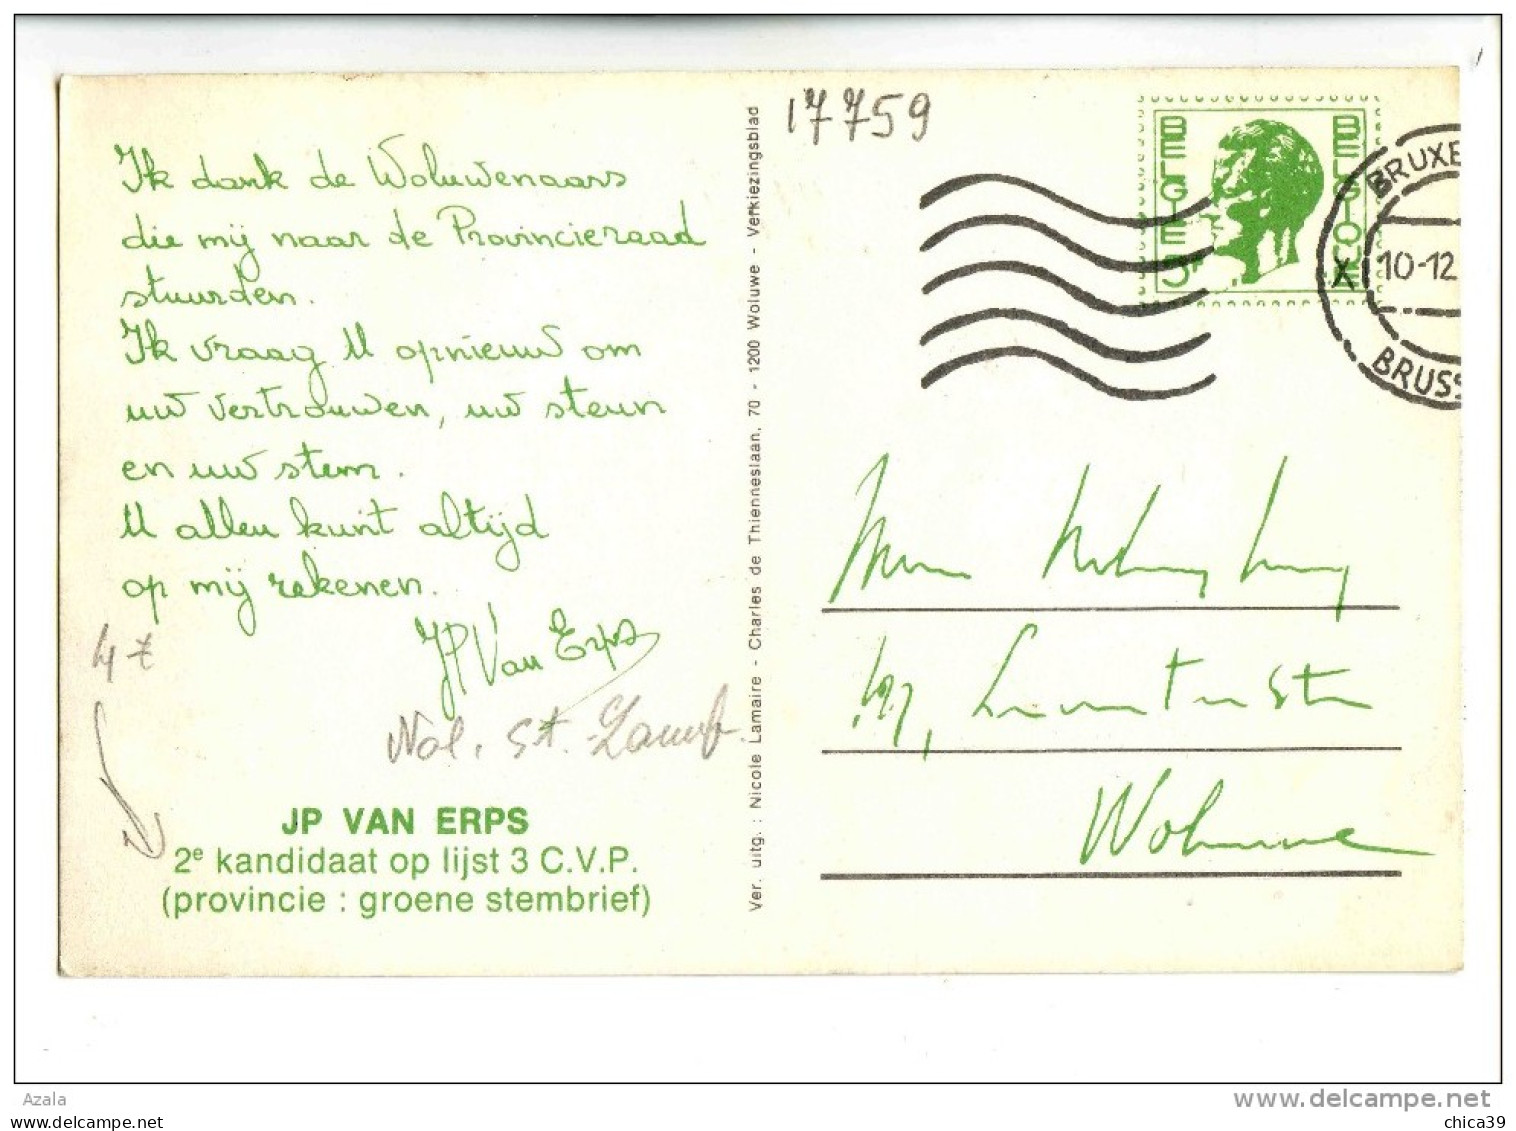 17759
BELGIE
BELGIQUE
BRUXE
10-12
X
BRUSS
Ik dank de Woluwenaars
die mij naar de Provincieraad
stuurden.
Ik vraag U opnieuw om
uw vertrouwen, uw steun
en uw stem.
U allen kunt altijd
op mij rekenen.
JP Van Erps
Wol. St. Lamb.
JP VAN ERPS
2e kandidaat op lijst 3 C.V.P.
(provincie : groene stembrief)
Ver. uitg. : Nicole Lamaire - Charles de Thienneslaan, 70 - 1200 Woluwe - Verkiezingsblad
Woluwe
Azala
mijn op
delcampe.net
chica39